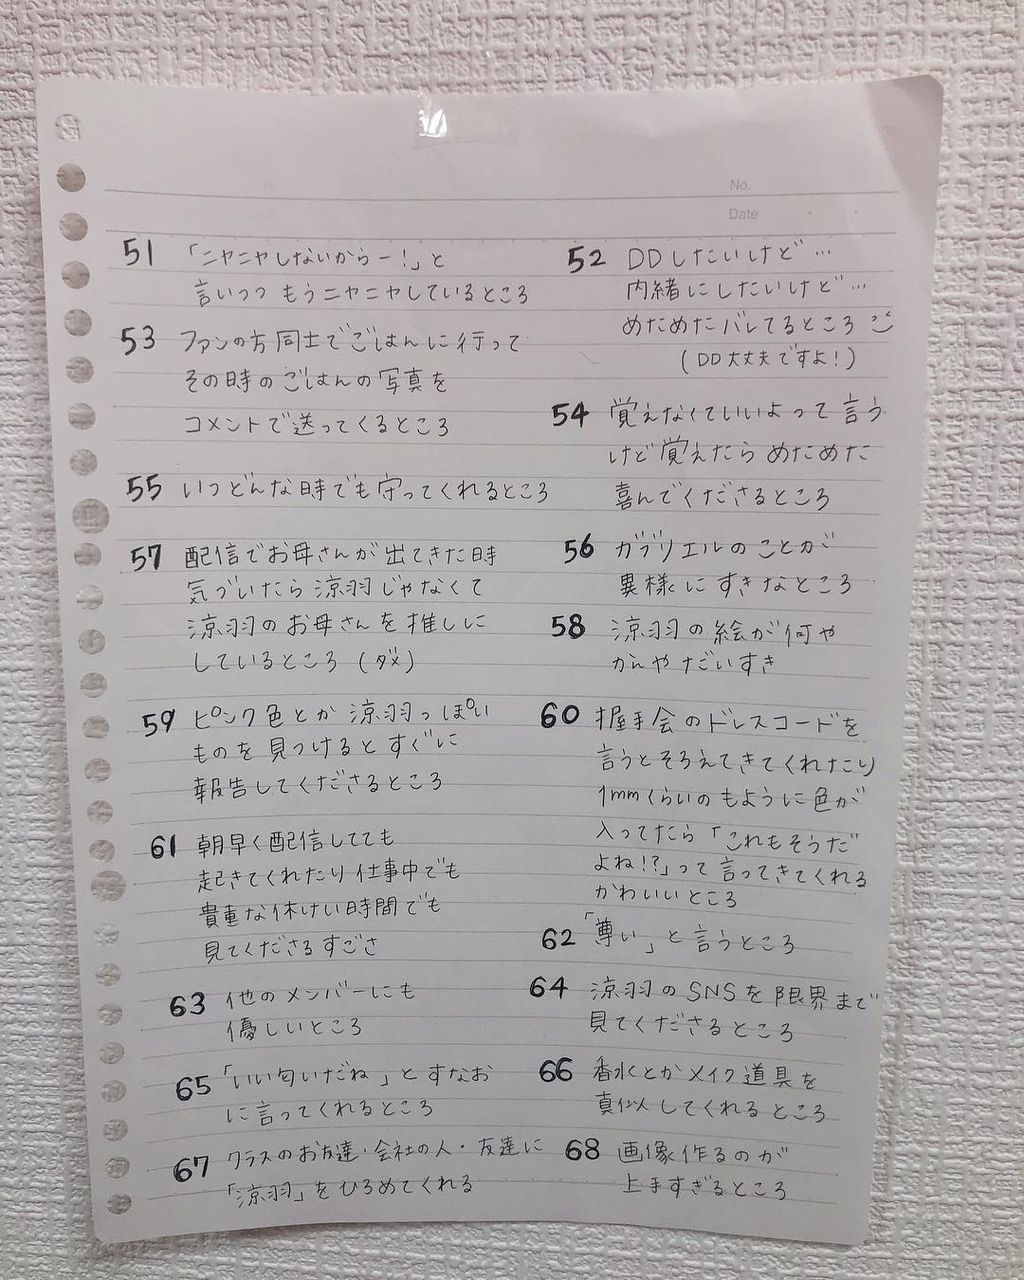 No.
Date
51 「ニヤニヤしないからー!」と
言いつつ もうニヤニヤしているところ
52 DDしたいけど…
内緒にしたいけど…
めためたバレてるところ
(DD大丈夫ですよ!)
53 ファンの方同士でごはんに行って
その時のごはんの写真を
コメントで送ってくるところ
54 覚えなくていいよって言う
けど覚えたら めためた
喜んでくださるところ
55 いつどんな時でも守ってくれるところ
56 ガブリエルのことが
異様にすきなところ
57 配信でお母さんが出てきた時
気づいたら涼羽じゃなくて
涼羽のお母さんを推しに
しているところ(ダメ)
58 涼羽の絵が何や
かんやだいすき
59 ピンク色とか涼羽っぽい
ものを見つけるとすぐに
報告してくださるところ
60 握手会のドレスコードを
言うとそろえてきてくれたり
1mmくらいのもように色が
入ってたら「これもそうだ
よね!?」って言ってきてくれる
かわいいところ
61 朝早く配信してても
起きてくれたり仕事中でも
貴重な休けい時間でも
見てくださるすごさ
62 「尊い」と言うところ
63 他のメンバーにも
優しいところ
64 涼羽のSNSを限界まで
見てくださるところ
65 「いい匂いだね」とすなお
に言ってくれるところ
66 香水とかメイク道具を
真似してくれるところ
67 クラスのお友達・会社の人・友達に
「涼羽」をひろめてくれる
68 画像作るのが
上手すぎるところ